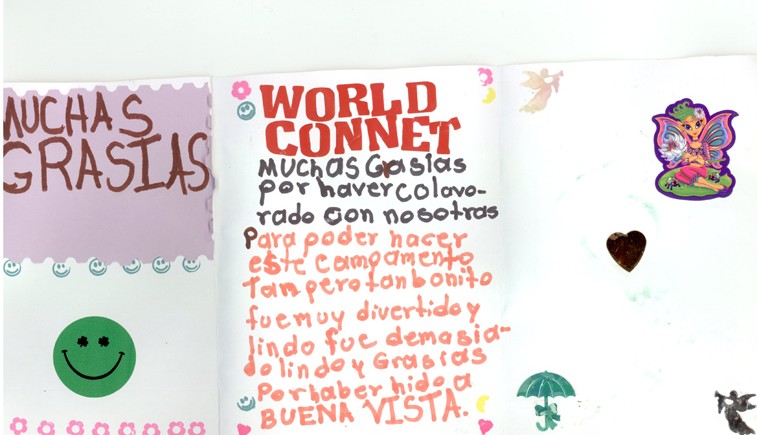 MUCHAS
GRASIAS
WORLD
CONNET
MUCHAS Grasias
por haver colavo-
rado con nosotras
Para poder hacer
este campamento
Tan pero tan bonito
fue muy divertido y
lindo fue demasia-
do lindo y Grasias
Por haber hido a
BUENA VISTA.